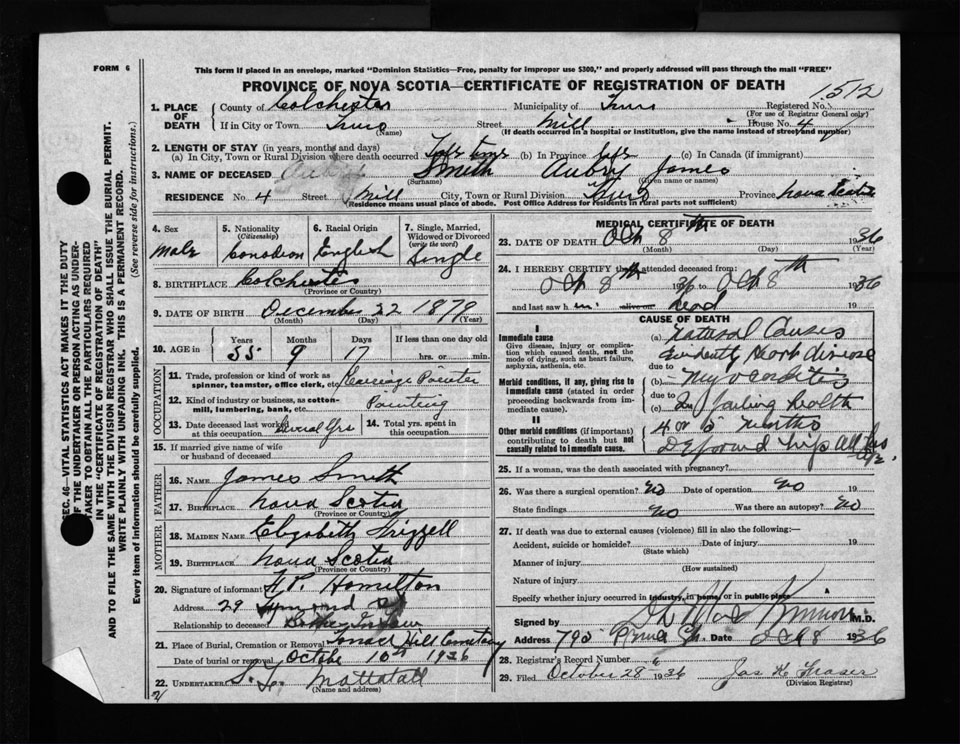 FORM 6
This form if placed in an envelope, marked "Dominion Statistics—Free, penalty for improper use $300," and properly addressed will pass through the mail "FREE"
PROVINCE OF NOVA SCOTIA—CERTIFICATE OF REGISTRATION OF DEATH
1512
1. PLACE OF DEATH County of Colchester Municipality of Truro Registered No.
(For use of Registrar General only)
If in City or Town Truro Street Mill House No. 4
(Name) (If death occurred in a hospital or institution, give the name instead of street and number)
2. LENGTH OF STAY (in years, months and days)
(a) In City, Town or Rural Division where death occurred (b) In Province life (c) In Canada (if immigrant)
3. NAME OF DECEASED Smith Aubry James
(Surname) (Given name or names)
RESIDENCE No. 4 Street Mill City, Town or Rural Division Truro Province Nova Scotia
(Residence means usual place of abode. Post Office Address for Residents in rural parts not sufficient)
4. Sex Male
5. Nationality (Citizenship) Canadian
6. Racial Origin English
7. Single, Married, Widowed or Divorced (write the word) Single
8. BIRTHPLACE Colchester
(Province or Country)
9. DATE OF BIRTH December 22 1879
(Month) (Day) (Year)
10. AGE in Years Months Days If less than one day old
55 9 17 hrs. or min.
OCCUPATION
11. Trade, profession or kind of work as spinner, teamster, office clerk, etc. Carriage Painter
12. Kind of industry or business, as cotton-mill, lumbering, bank, etc. Painting
13. Date deceased last worked at this occupation Several yrs
14. Total yrs. spent in this occupation
15. If married give name of wife or husband of deceased
FATHER
16. NAME James Smith
17. BIRTHPLACE Nova Scotia
(Province or Country)
MOTHER
18. MAIDEN NAME Elizabeth Frizzell
19. BIRTHPLACE Nova Scotia
(Province or Country)
20. Signature of informant H P. Hamilton
Address 29
Relationship to deceased
21. Place of Burial, Cremation or Removal Hill Cemetery
Date of burial or removal October 10th 1936
22. UNDERTAKER Mattatall
(Name and address)
MEDICAL CERTIFICATE OF DEATH
23. DATE OF DEATH Oct 8th 1936
(Month) (Day) (Year)
24. I HEREBY CERTIFY that I attended deceased from:
Oct 8th 1936 to Oct 8th 1936
and last saw h im alive on dead
CAUSE OF DEATH
I
Immediate cause
Give disease, injury or complication which caused death, not the mode of dying, such as heart failure, asphyxia, asthenia, etc.
(a) Natural Causes
Evidently Heart disease
due to
Morbid conditions, if any, giving rise to immediate cause (stated in order proceeding backwards from immediate cause).
(b) Myocarditis
due to
(c) In failing health
4 or 6 months
II
Other morbid conditions (if important) contributing to death but not causally related to immediate cause.
Deformed hip all his life
25. If a woman, was the death associated with pregnancy?
26. Was there a surgical operation? No Date of operation no 19
State findings No Was there an autopsy? No
27. If death was due to external causes (violence) fill in also the following:—
Accident, suicide or homicide? Date of injury 19
(State which)
Manner of injury
(How sustained)
Nature of injury
Specify whether injury occurred in industry, in home, or in public place
Signed by M.D.
Address 790 Date Oct 8 1936
28. Registrar's Record Number
29. Filed October 28 1936 Jas H Fraser
(Division Registrar)
SEC. 46—VITAL STATISTICS ACT MAKES IT THE DUTY
OF THE UNDERTAKER OR PERSON ACTING AS UNDERTAKER TO OBTAIN ALL THE PARTICULARS REQUIRED
IN THE "CERTIFICATE OF REGISTRATION OF DEATH"
AND TO FILE THE SAME WITH THE DIVISION REGISTRAR WHO SHALL ISSUE THE BURIAL PERMIT.
WRITE PLAINLY WITH UNFADING INK. THIS IS A PERMANENT RECORD.
Every item of information should be carefully supplied. (See reverse side for instructions.)